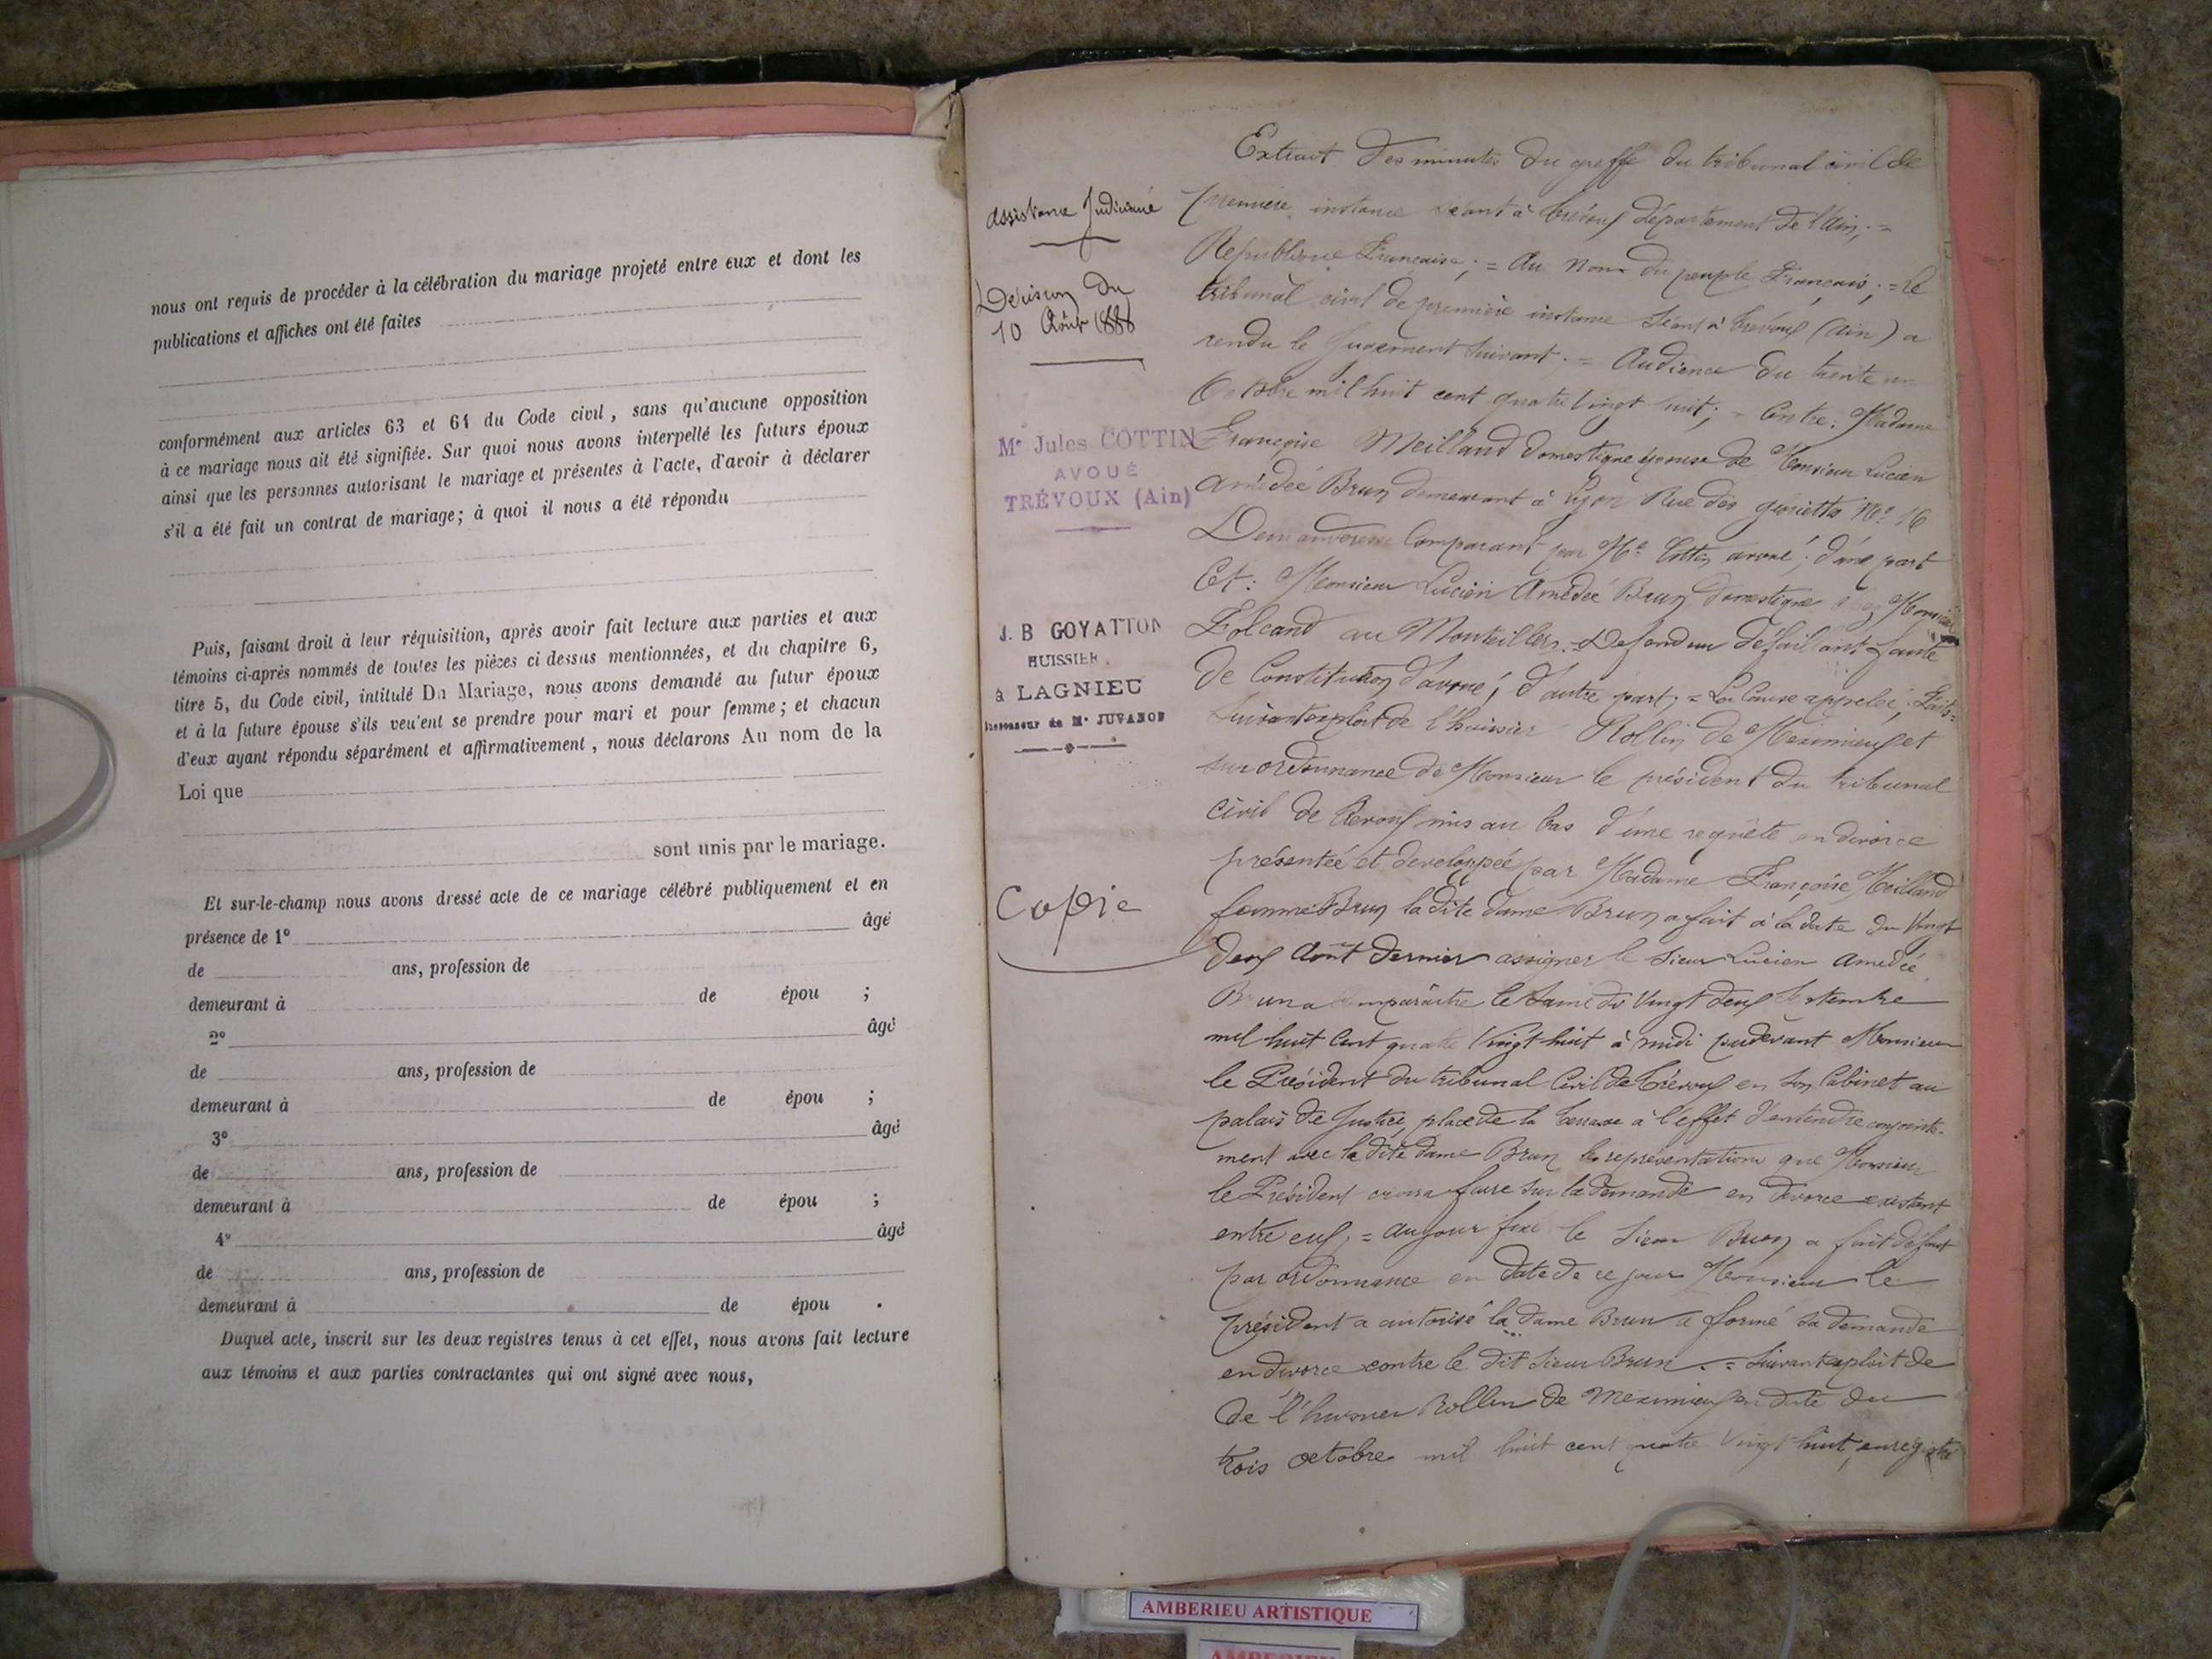 nous ont requis de procéder à la célébration du mariage projeté entre eux et dont les
publications et affiches ont été faites
conformément aux articles 63 et 64 du Code civil, sans qu'aucune opposition
à ce mariage nous ait été signifiée. Sur quoi nous avons interpellé les futurs époux
ainsi que les personnes autorisant le mariage et présentes à l'acte, d'avoir à déclarer
s'il a été fait un contrat de mariage; à quoi il nous a été répondu
Puis, faisant droit à leur réquisition, après avoir fait lecture aux parties et aux
témoins ci-après nommés de toutes les pièces ci dessus mentionnées, et du chapitre 6,
titre 5, du Code civil, intitulé Du Mariage, nous avons demandé au futur époux
et à la future épouse s'ils veulent se prendre pour mari et pour femme; et chacun
d'eux ayant répondu séparément et affirmativement, nous déclarons Au nom de la
Loi que
sont unis par le mariage.
Et sur-le-champ nous avons dressé acte de ce mariage célébré publiquement et en
présence de 1° âgé
de ans, profession de
demeurant à de épou ;
2° âgé
de ans, profession de
demeurant à de épou ;
3° âgé
de ans, profession de
demeurant à de épou ;
4° âgé
de ans, profession de
demeurant à de épou .
Duquel acte, inscrit sur les deux registres tenus à cet effet, nous avons fait lecture
aux témoins et aux parties contractantes qui ont signé avec nous,
assistance Judiciaire
Décision du
10 Août 1888
Me Jules COTTIN
AVOUÉ
TRÉVOUX (Ain)
J. B GOYATTON
HUISSIER
à LAGNIEU
Successeur de Me JUVANON
Copie
Extrait des minutes du greffe du tribunal civil de
première instance séant à Trévoux département de l'Ain; =
Republique Française; = Au Nom du peuple Français; = le
tribunal civil de première instance séant à Trévoux (Ain) a
rendu le Jugement suivant. = Audience du trente un
Octobre mil huit cent quatre vingt huit; = Entre: Madame
Françoise Meilland domestique épouse de Monsieur Lucien
Amédée Brun demeurant à Lyon Rue des gloriettes No 16
Demanderesse Comparant par Me Cottin avoué; d'une part
Et: Monsieur Lucien Amédée Brun domestique chez Monsieur
Folcand au Monteillers. = Defendeur défaillant faute
de Constitution d'avoué; d'autre part; = La Cause appelée; Faits =
Suivant exploit de l'huissier Rollin de Meximieux et
sur ordonnance de Monsieur le président du tribunal
civil de Trevoux mis au bas d'une requête en divorce
présentée et developpée par Madame Françoise Meilland
femme Brun la dite dame Brun a fait à la date du Vingt
deux Août dernier assigner le sieur Lucien Amédée
Brun a comparaître le samedi Vingt deux Septembre
mil huit Cent quatre Vingt huit à midi pardevant Monsieur
le Président du tribunal Civil de Trévoux en son Cabinet au
palais de Justice, place de la Terrasse à l'effet d'entendre conjointe-
ment avec la dite dame Brun les représentations que Monsieur
le Président croira faire sur la demande en divorce existant
entre eux; = au jour fixé le sieur Brun a fait défaut
par ordonnance en date de ce jour Monsieur le
président a autorisé la dame Brun a formé sa demande
en divorce contre le dit sieur Brun. = Suivant exploit de
de l'huissier Rollin de Meximieux en date du
trois octobre mil huit cent quatre Vingt huit, enregistré
AMBERIEU ARTISTIQUE
AMBERIEU